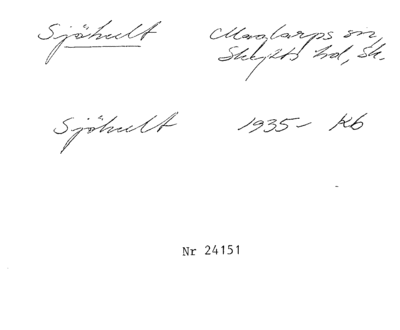 Sjöhult Maglarps sn,
Skytts hd, Sk.
Sjöhult 1935- Kb
Nr 24151